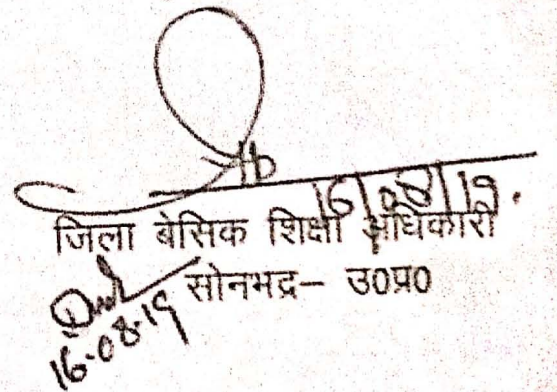 16/08/19.
जिला बेसिक शिक्षा अधिकारी
सोनभद्र- उ0प्र0
16.08.19